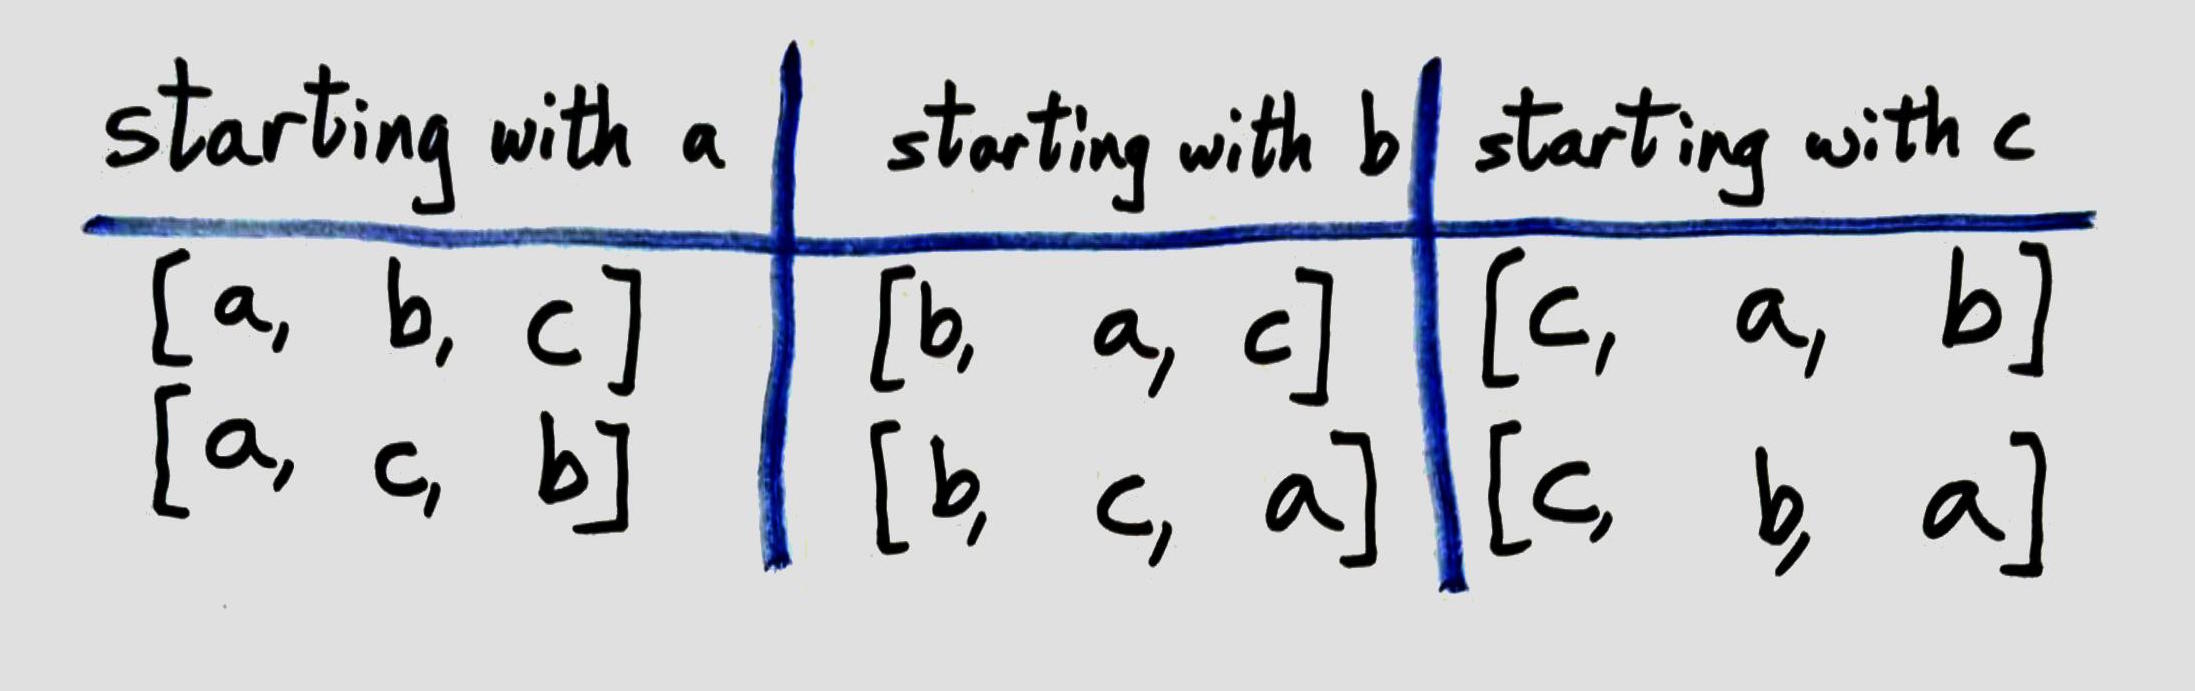 starting with a starting with b starting with c
[a, b, c] [b, a, c] [c, a, b]
[a, c, b] [b, c, a] [c, b, a]